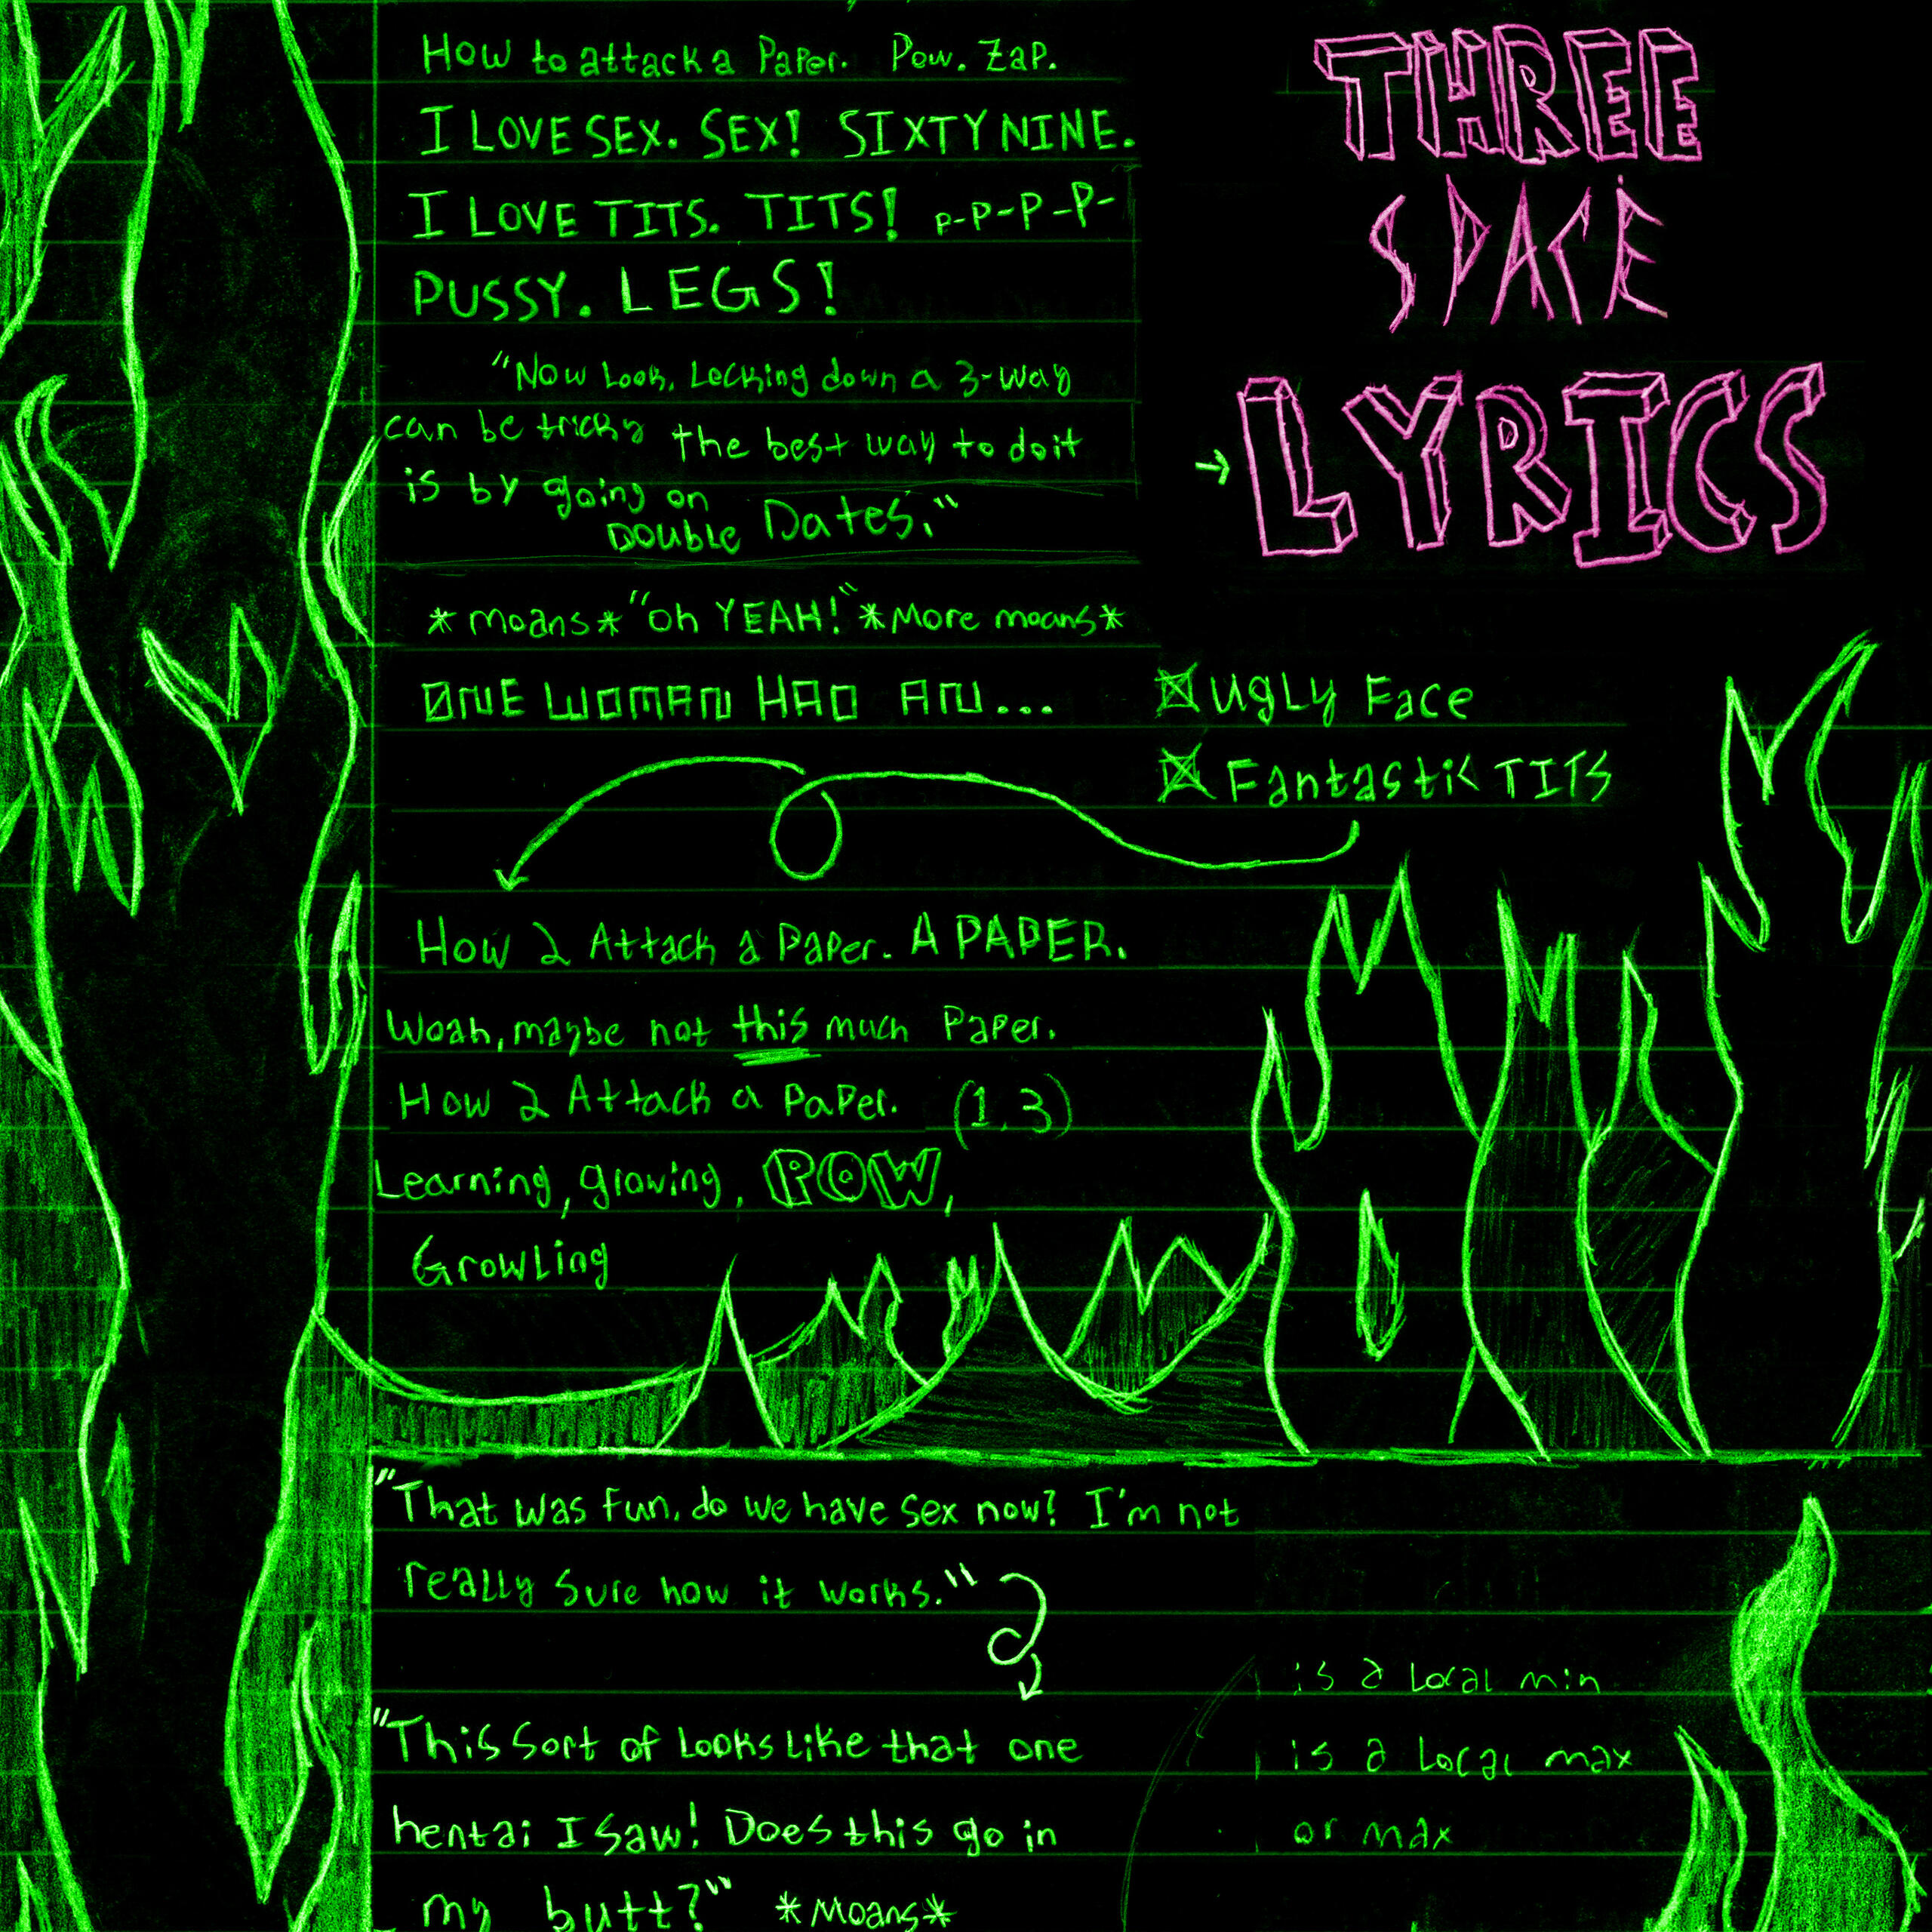 How to attack a Paper. Pow. Zap.
I LOVE SEX. SEX! SIXTY NINE.
I LOVE TITS. TITS! P-P-P-P-
PUSSY. LEGS!
"Now Look, Locking down a 3-way
can be tricky the best way to do it
is by going on
DOUBLE Dates."
*moans* "Oh YEAH!" *More moans*
ONE WOMAN HAD AN...
THREE
SPACE
→ LYRICS
☒ UGLY Face
☒ Fantastic TITS
How 2 Attack a Paper. A PAPER.
Woah, maybe not this much Paper.
How 2 Attack a Paper. (1,3)
Learning, growing, POW,
Growling
"That was fun, do we have sex now? I'm not
really sure how it works."
"This sort of looks like that one
hentai I saw! Does this go in
my butt?" *Moans*
is a local min
is a local max
or max